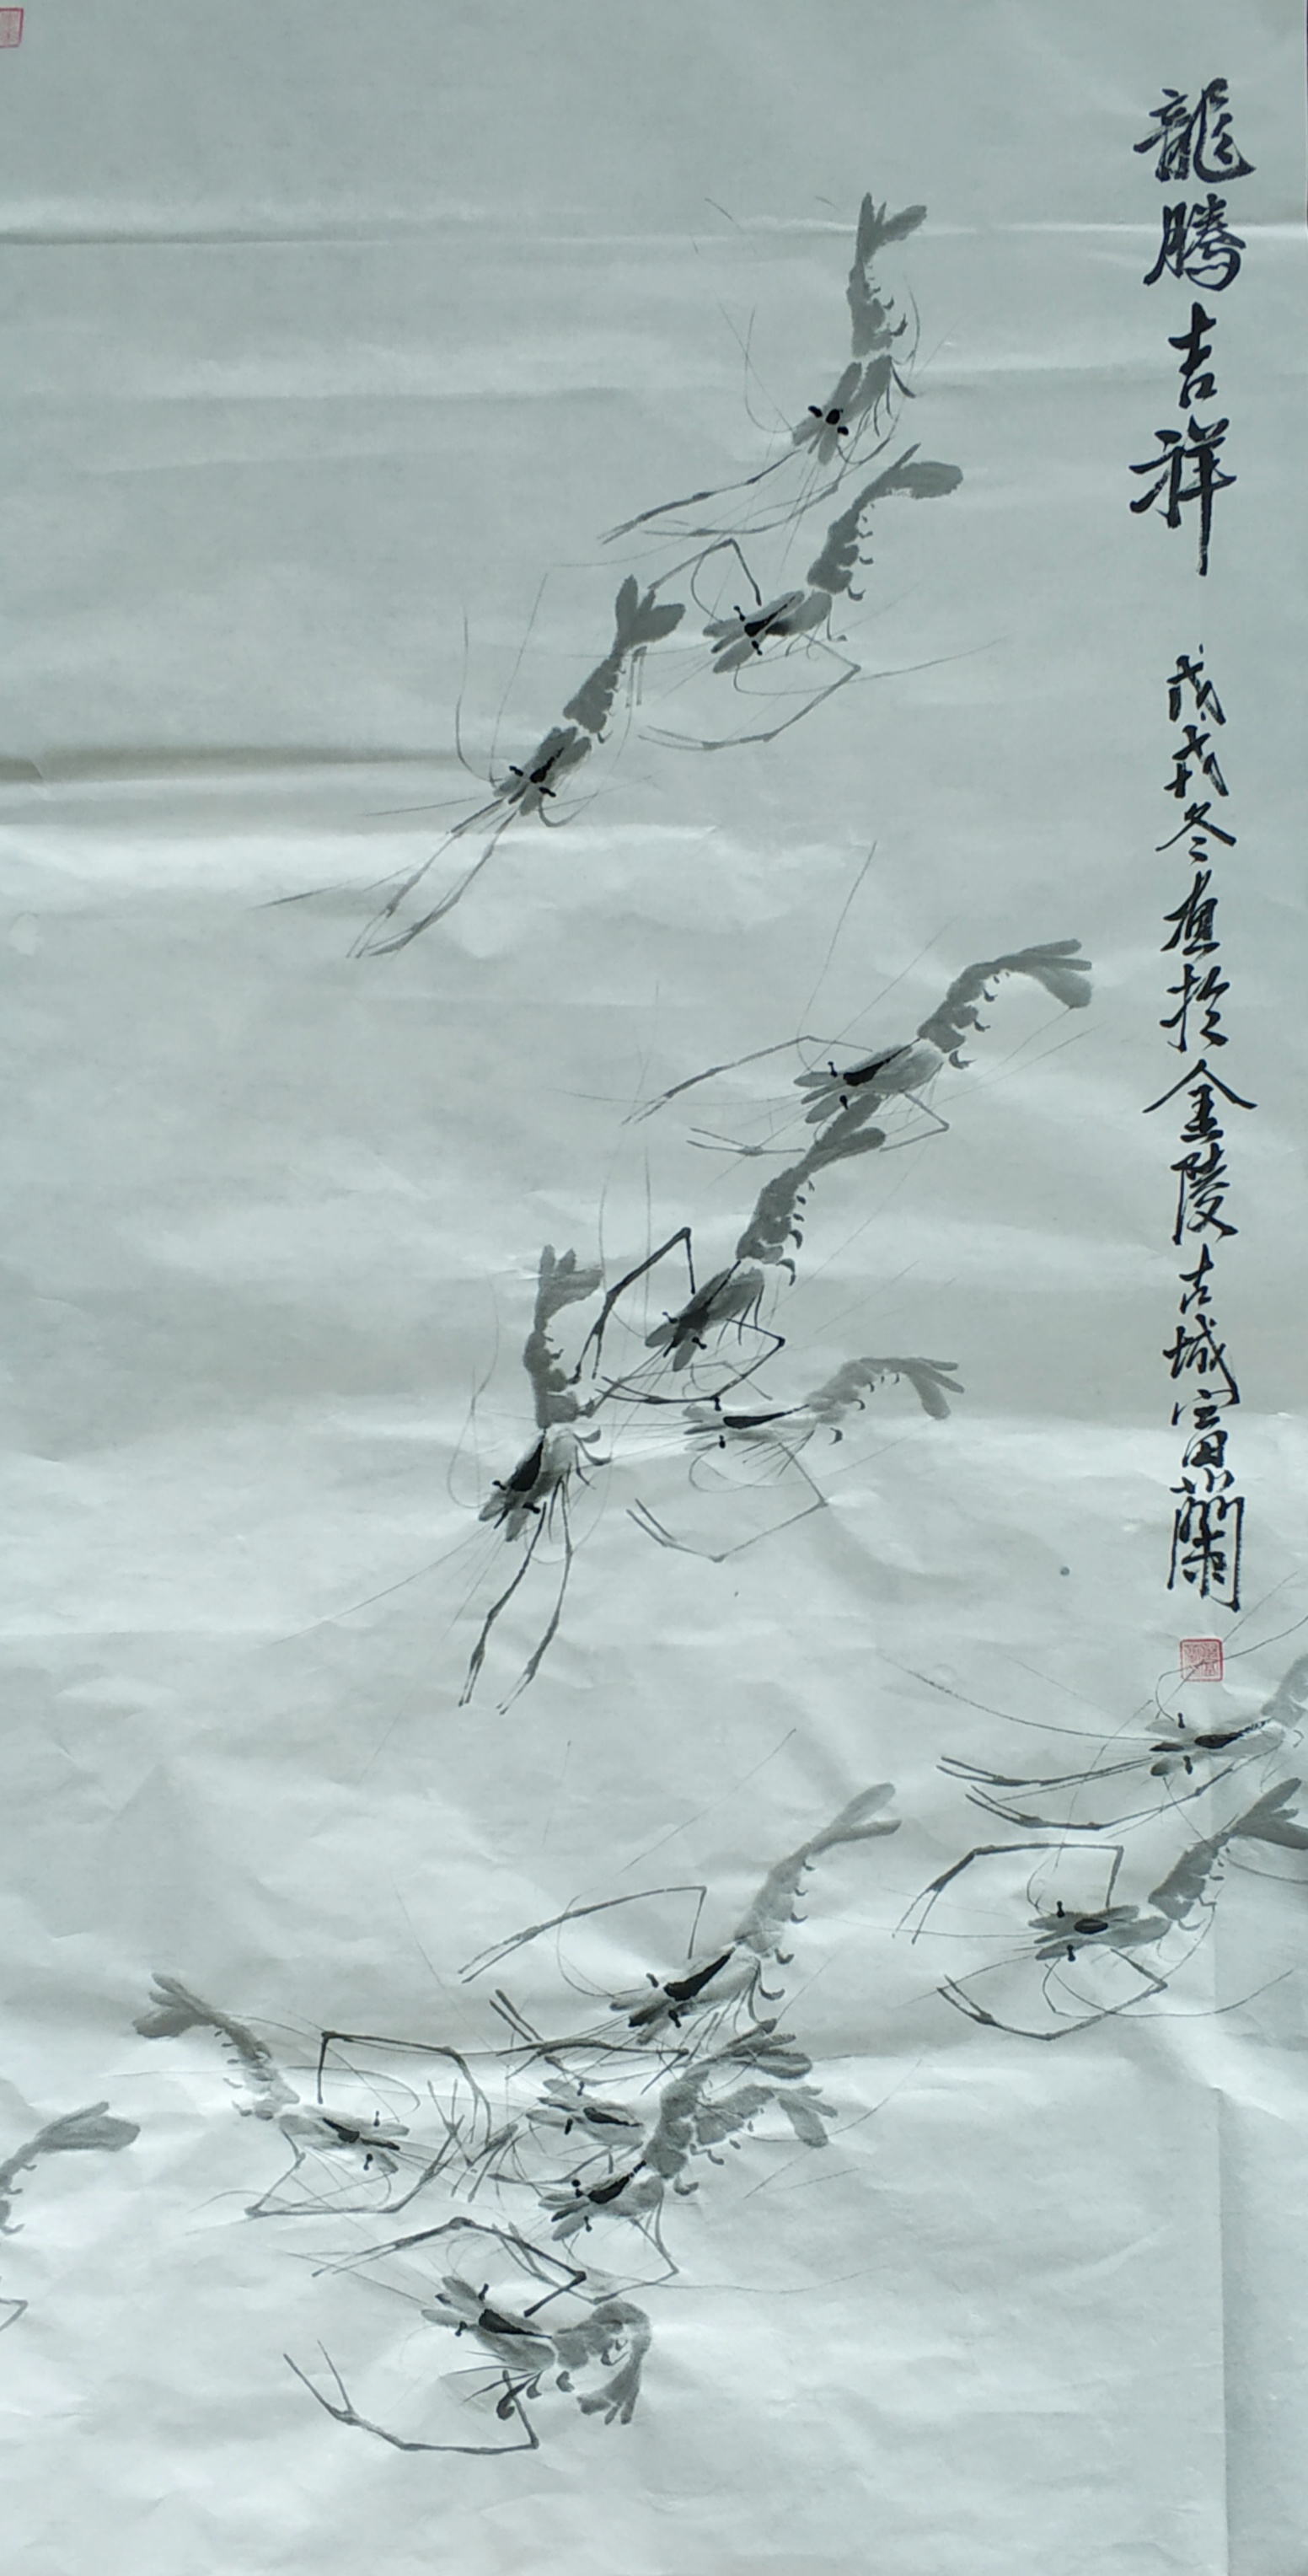 龍騰吉祥 戊戌冬盡於金陵古城富蘭